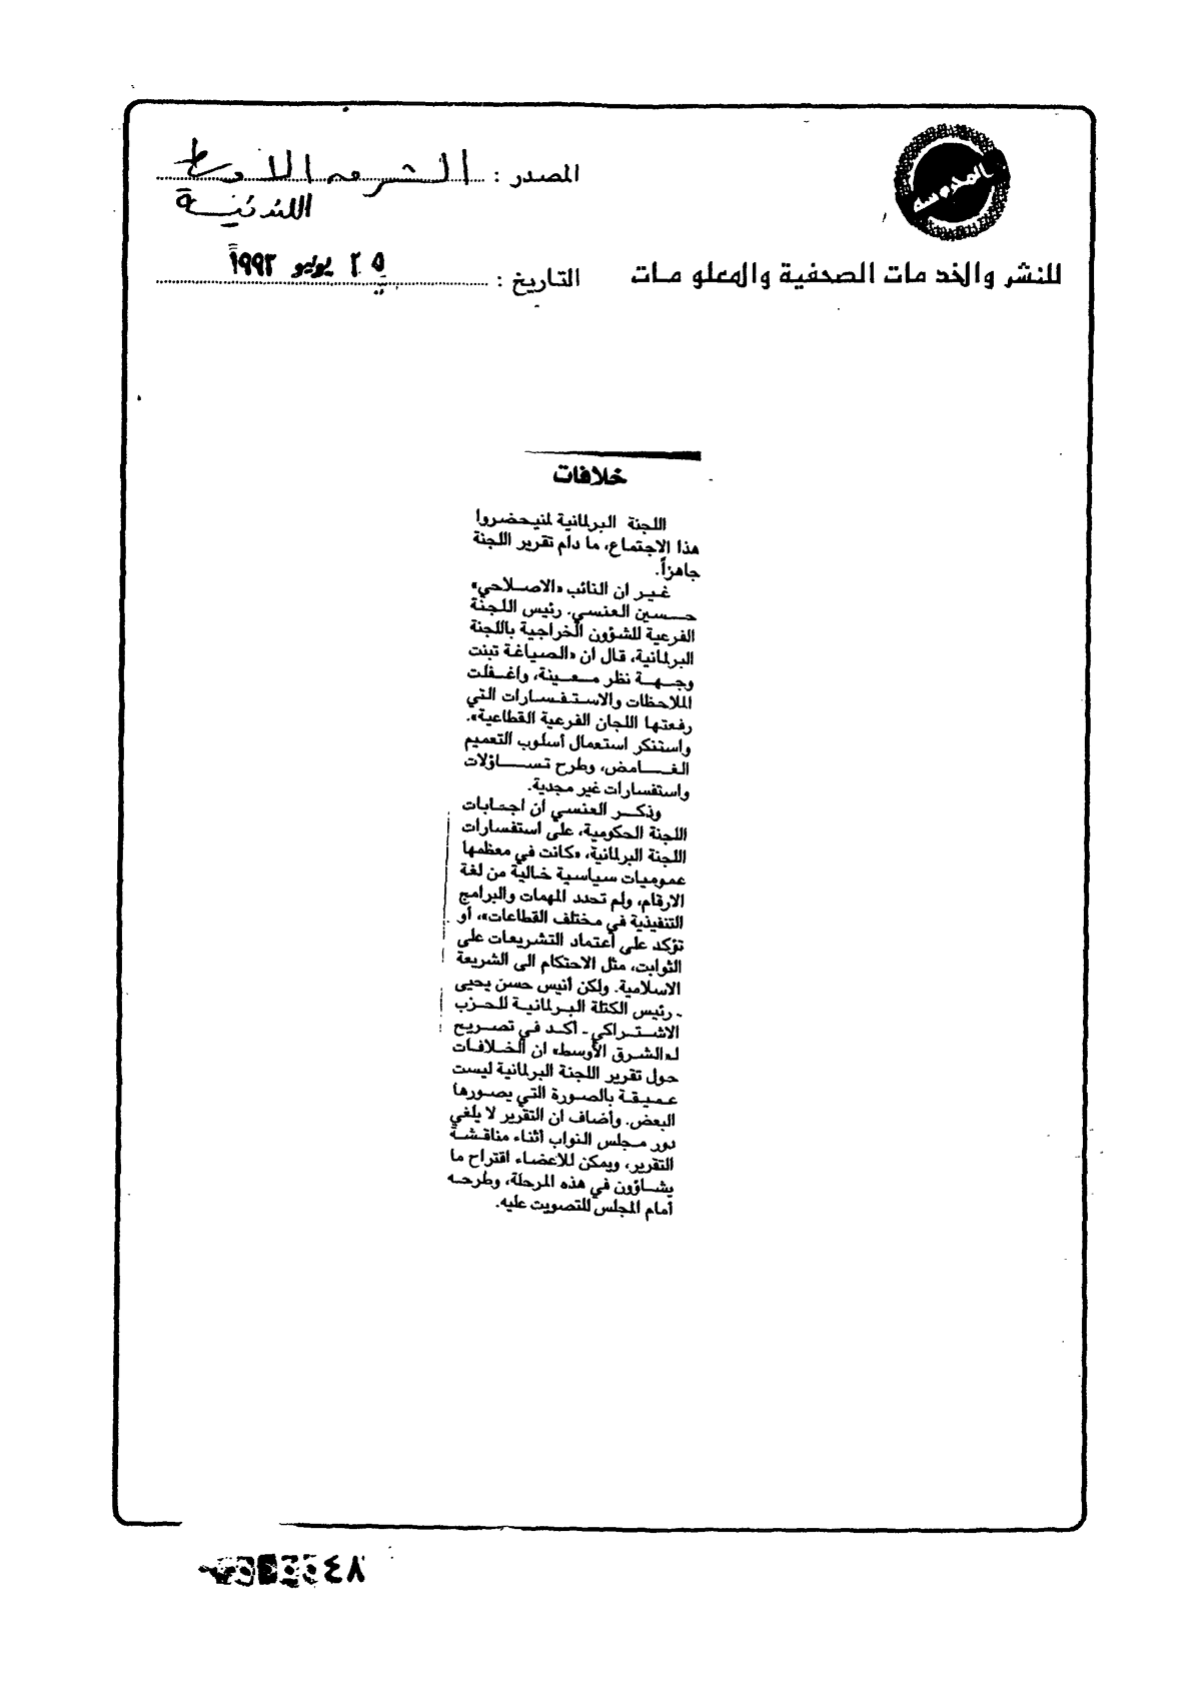 المدروسة
للنشر والخدمات الصحفية والمعلومات
المصدر : الشرق الأوسط
اللندنية
التاريخ : ٢٥ يوليو ١٩٩٢
خلافات
اللجنة البرلمانية لمنيحضروا
هذا الاجتماع، ما دام تقرير اللجنة
جاهزاً.
غير ان النائب «الاصلاحي»
حسين العنسي. رئيس اللجنة
الفرعية للشؤون الخراجية باللجنة
البرلمانية، قال ان «الصياغة تبنت
وجهة نظر معينة، واغفلت
الملاحظات والاستفسارات التي
رفعتها اللجان الفرعية القطاعية».
واستنكر استعمال أسلوب التعميم
الغامض، وطرح تساؤلات
واستفسارات غير مجدية.
وذكر العنسي ان اجابات
اللجنة الحكومية، على استفسارات
اللجنة البرلمانية، «كانت في معظمها
عموميات سياسية خالية من لغة
الارقام، ولم تحدد المهمات والبرامج
التنفيذية في مختلف القطاعات»، أو
تؤكد على أعتماد التشريعات على
الثوابت، مثل الاحتكام الى الشريعة
الاسلامية. ولكن أنيس حسن يحيى
- رئيس الكتلة البرلمانية للحزب
الاشتراكي - اكد في تصريح
لـ«الشرق الأوسط» ان الخلافات
حول تقرير اللجنة البرلمانية ليست
عميقة بالصورة التي يصورها
البعض. وأضاف ان التقرير لا يلغي
دور مجلس النواب أثناء مناقشة
التقرير، ويمكن للاعضاء اقتراح ما
يشاؤون في هذه المرحلة، وطرحه
أمام المجلس للتصويت عليه.